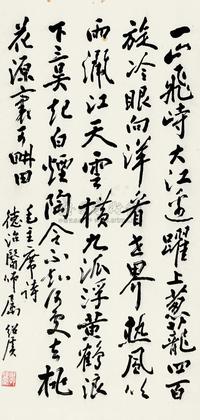 一山飛峙大江邊躍上葱蘢四百
旋冷眼向洋看世界熱風吹
雨灑江天雲橫九派浮黃鶴浪
下三吳起白煙陶令不知何處去桃
花源裏可畊田
毛主席詩
德治醫師屬